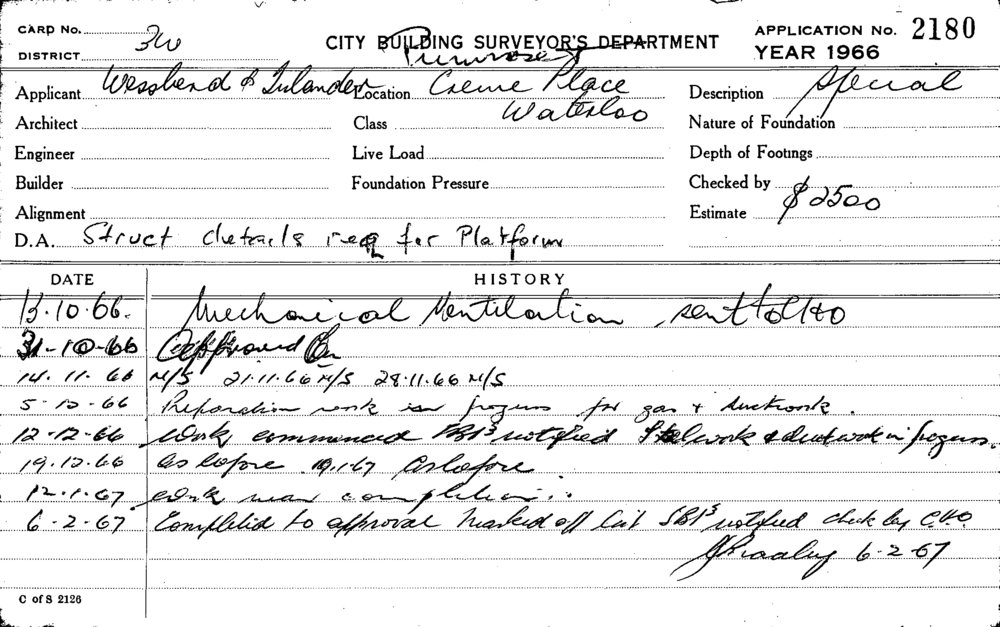 CARD No.
CITY BUILDING SURVEYOR'S DEPARTMENT
APPLICATION No. 2180
DISTRICT 3W
Primrose
YEAR 1966
Applicant Wessberd & Inlander
Location Creme Place
Description Special
Architect
Class Waterloo
Nature of Foundation
Engineer
Live Load
Depth of Footings
Builder
Foundation Pressure
Checked by
Alignment
Estimate $2500
D.A. Struct details req for Platform
DATE HISTORY
13.10.66. Mechanical Ventilation sent to CHO
31-10-66 Approved
14.11.66 N/S 21.11.66 N/S 28.11.66 N/S
5-12-66 Reparation work in progress for gas & ductwork.
12-12-66 Work commenced SBI3 notified Steelwork & ductwork in progress.
19.12.66 as before 9.1.67 As before
12.1.67 work near completion..
6-2-67 Completed to approval marked off list SBI3 notified check by C.H.O.
6-2-67
C of S 2126